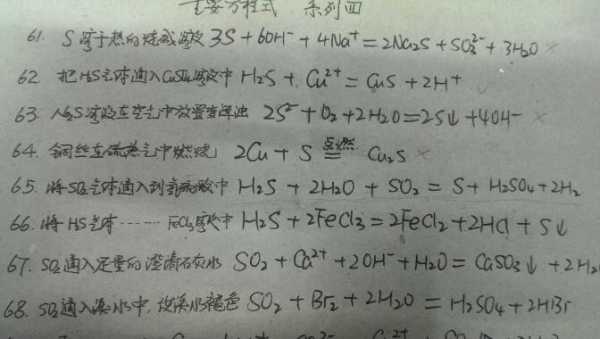 主要方程式 系列四
61. S溶于热的烧碱溶液 3S+6OH⁻+4Na⁺=2Na₂S+SO₃²⁻+3H₂O ×
62. 把H₂S气体通入CuSO₄溶液中 H₂S+Cu²⁺=CuS+2H⁺
63. Na₂S溶液在空气中放置变浑浊 2S²⁻+O₂+2H₂O=2S↓+4OH⁻ ×
64. 铜丝在硫蒸气中燃烧 2Cu+S 点燃 = Cu₂S ×
65. 将SO₂气体通入到氢硫酸中 H₂S+2H₂O+SO₂=S+H₂SO₄+2H₂
66. 将H₂S气体……FeCl₃溶液中 H₂S+2FeCl₃=2FeCl₂+2HCl+S↓
67. SO₂通入足量的澄清石灰水 SO₂+Ca²⁺+2OH⁻+H₂O=CaSO₃↓+2H₂
68. SO₂通入溴水中,使溴水褪色 SO₂+Br₂+2H₂O=H₂SO₄+2HBr